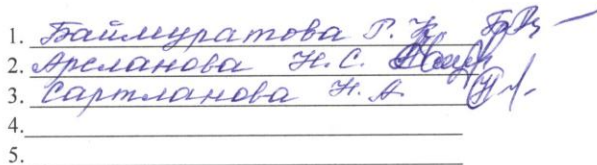 1. Баймуратова Г. Я
2. Арсланова Н. С.
3. Сартланова Н. А.
4.
5.